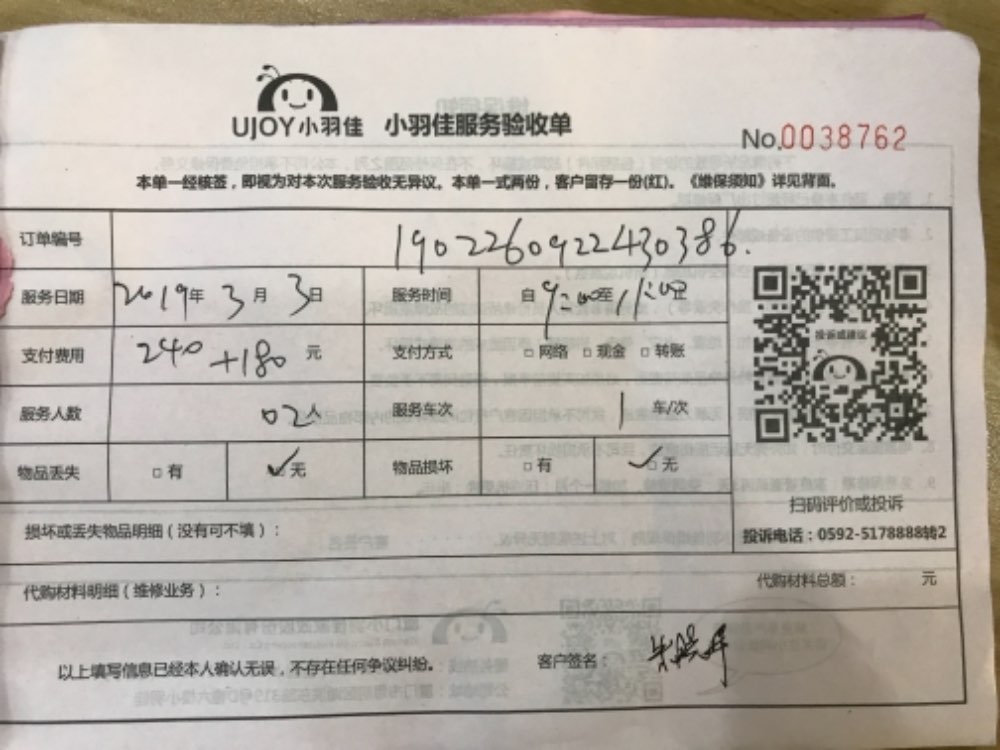 UJOY小羽佳 小羽佳服务验收单
No.0038762
本单一经核签，即视为对本次服务验收无异议。本单一式两份，客户留存一份(红)。《维保须知》详见背面。
订单编号 1902260922430386.
服务日期 2019年 3月 3日 服务时间 自9:00至11:00
支付费用 240+180 元 支付方式 □网络 □现金 □转账
服务人数 02人 服务车次 1 车/次
物品丢失 □有 ✓□无 物品损坏 □有 ✓□无
投诉或建议
扫码评价或投诉
投诉电话：0592-5178888转2
损坏或丢失物品明细（没有可不填）：
代购材料明细（维修业务）： 代购材料总额： 元
以上填写信息已经本人确认无误，不存在任何争议纠纷。 客户签名：